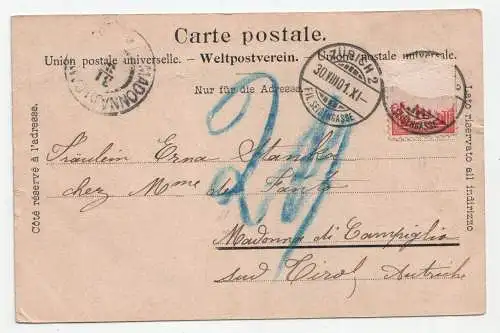 Carte postale.
Union postale universelle. — Weltpostverein. — Unione postale universale.
Nur für die Adresse.
Côté réservé à l'adresse.
Lato riservato all indirizzo
MADONNA
ZÜRICH 2
30.VIII.01.XI-
FIL. SEIDENGASSE
SEIDENGASSE
24
Fräulein Erna Stanko
chez Mme de Fanto
Madonna di Campiglio
sud Tirol Autriche